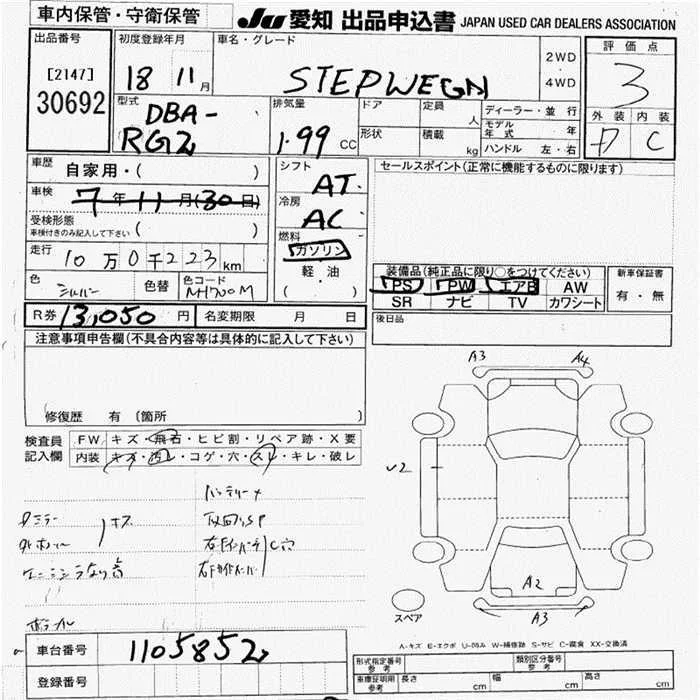 車内保管・守衛保管
JU 愛知 出品申込書 JAPAN USED CAR DEALERS ASSOCIATION
出品番号
[2147]
30692
初度登録年月
18 11月
車名・グレード
STEPWEGN
2WD
4WD
評価点
3
外装 内装
C
型式
DBA-
RG2
排気量
1.99 CC
ドア
形状
定員
人
積載
kg
ディーラー・並行
モデル年式 年
ハンドル 左・右
車歴
自家用・( )
車検
7年11月(30日)
受検形態
車検付きのみ記入して下さい ( )
走行
10万0千223km
色
シルバー
色替
色コード
NH700M
シフト
AT
冷房
AC
燃料
ガソリン
軽・油
( )
セールスポイント(正常に機能するものに限ります)
装備品(純正品に限り○をつけてください)
PS PW エアB AW
SR ナビ TV カワシート
新車保証書
有・無
R券 13,050円
名変期限 月 日
後日品
注意事項申告欄(不具合内容等は具体的に記入して下さい)
修復歴 有 (箇所 )
検査員
記入欄
FW キズ・飛石・ヒビ割・リペア跡・X要
内装 キズ・汚レ・コゲ・穴・スレ・キレ・破レ
バッテリーメ
キズ
A3 A4
U2
A2
A3
スペア
A-キズ E-エクボ U-凹み W-補修跡 S-サビ C-腐食 XX-交換済
車台番号
1105852
登録番号
形式指定番号
参考
類別区分番号
参考
車庫証明用
参考
長さ cm
幅 cm
高さ cm